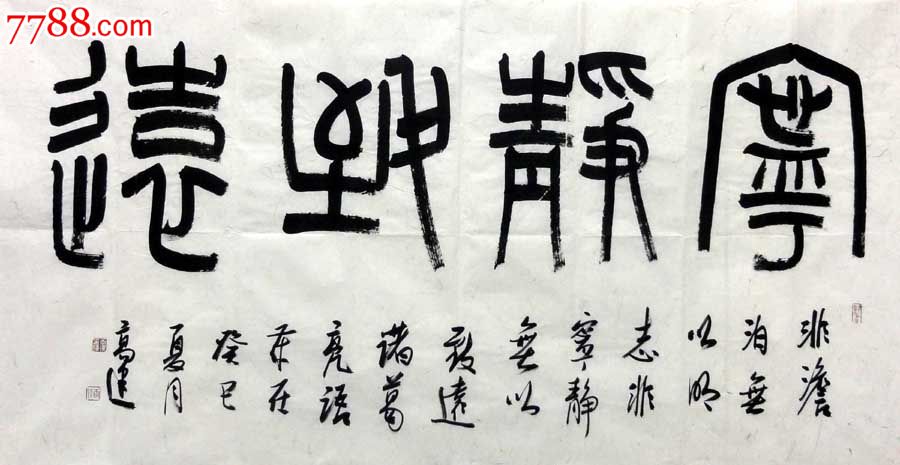 7788.com
寧靜致遠
非澹
泊無
以明
志非
寧靜
無以
致遠
諸葛
亮語
在
癸巳
夏月
高